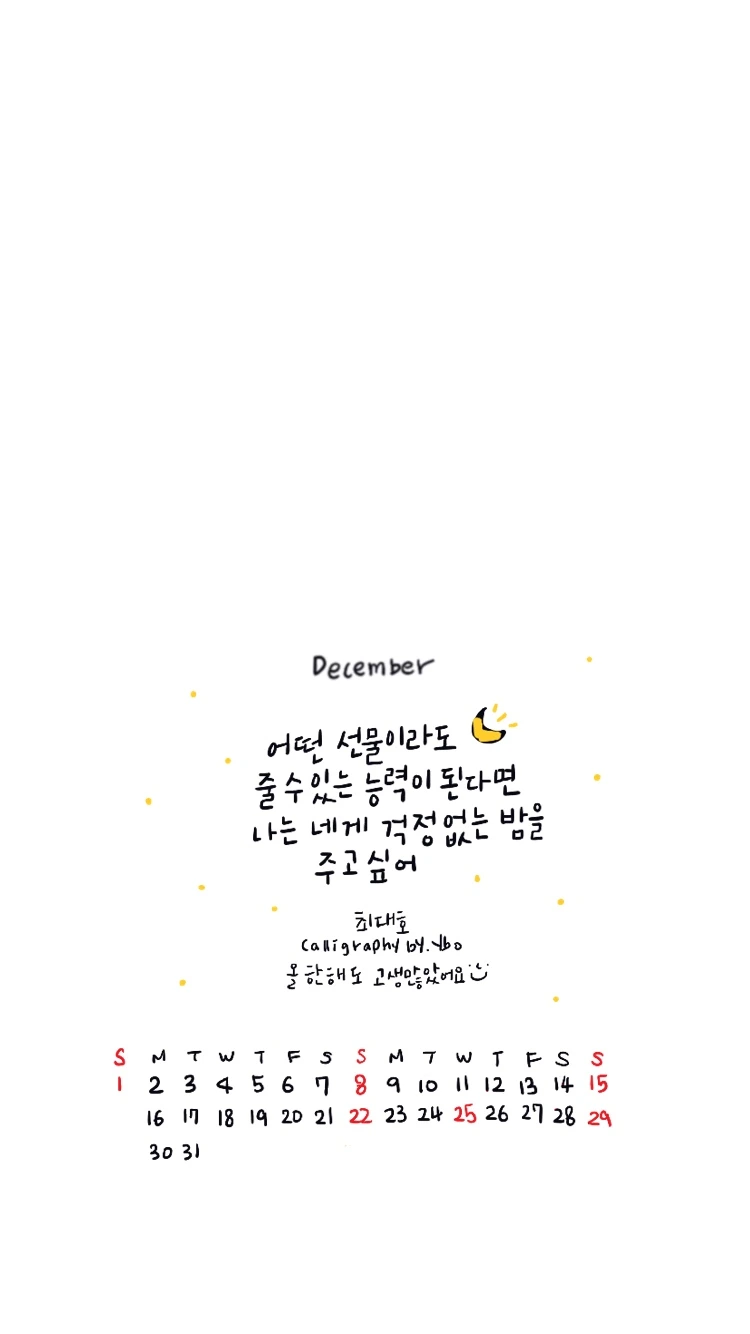 December
어떤 선물이라도
줄 수 있는 능력이 된다면
나는 네게 걱정 없는 밤을
주고 싶어
최대호
Calligraphy by. ybo
올 한해도 고생많았어요
S M T W T F S S M T W T F S S
1 2 3 4 5 6 7 8 9 10 11 12 13 14 15
16 17 18 19 20 21 22 23 24 25 26 27 28 29
30 31